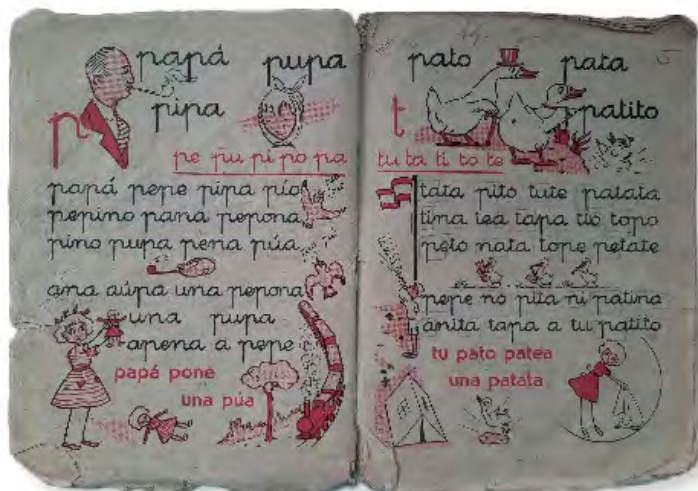 papá pupa
pipa
p
pe pu pi po pa
papá pepe pipa pío
pepino pana pepona
pino pupa pena púa
ana aúpa una pepona
una pupa
apena a pepe
papá pone
una púa
pato pata
patito
t
tu ta ti to te
tata pito tute patata
tina tea tapa tío topo
peto nata tope petate
pepe no pita ni patina
anita tapa a tu patito
tu pato patea
una patata